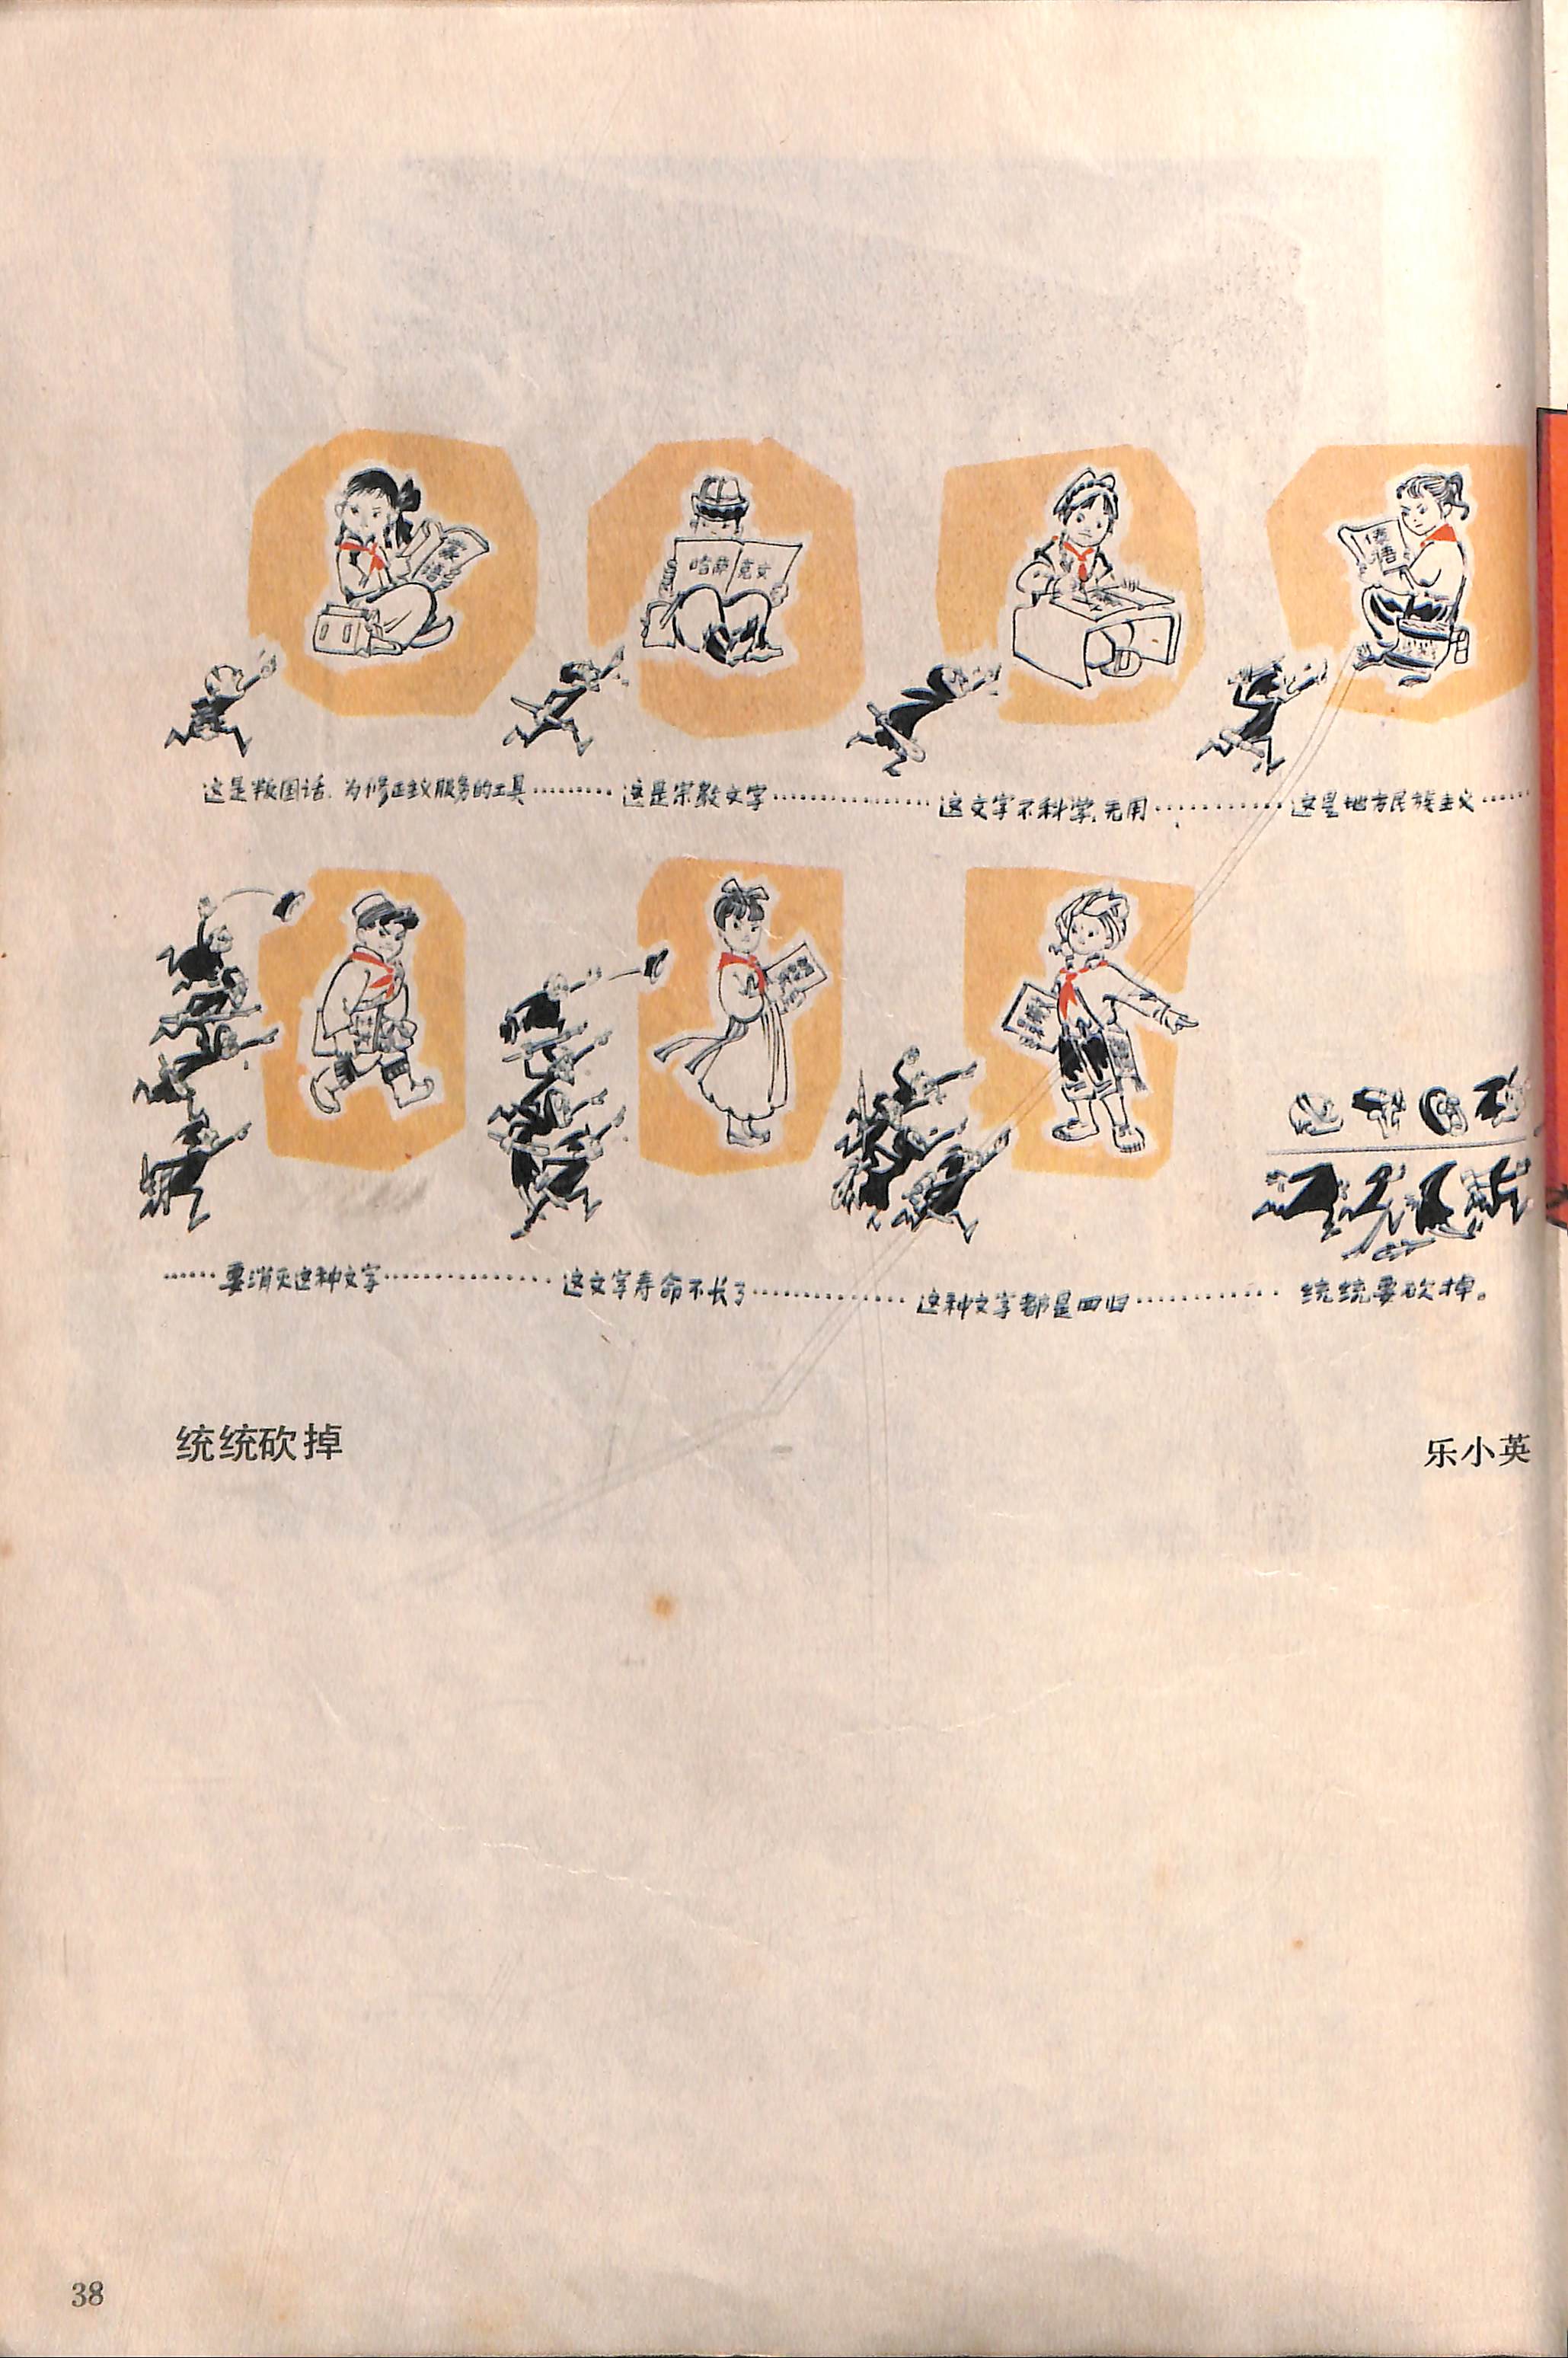 蒙语
哈萨克文
傣语
这是叛国话、为修正主义服务的工具………这是宗教文字……………这文字不科学,无用…………这是地方民族主义……
……要消灭这种文字……………这文字寿命不长了……………这种文字都是四旧…………统统要砍掉。
统统砍掉
乐小英
38